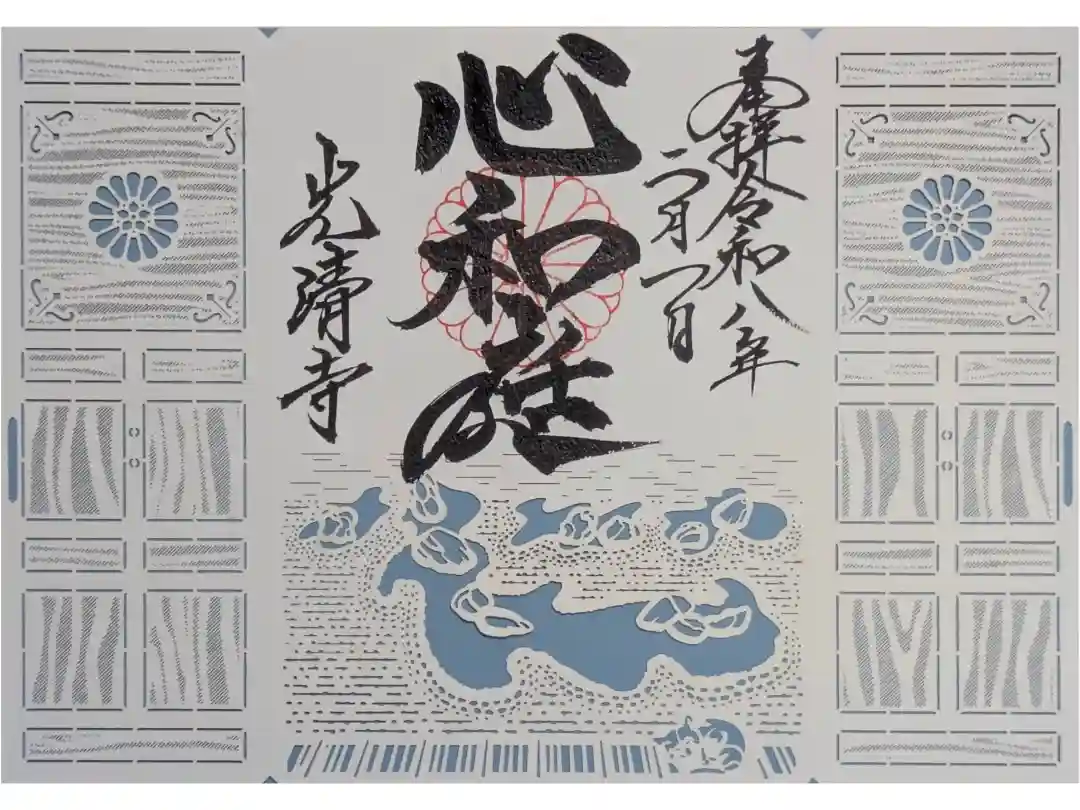 奉拝 令和八年
二月一日
心和庭
光清寺